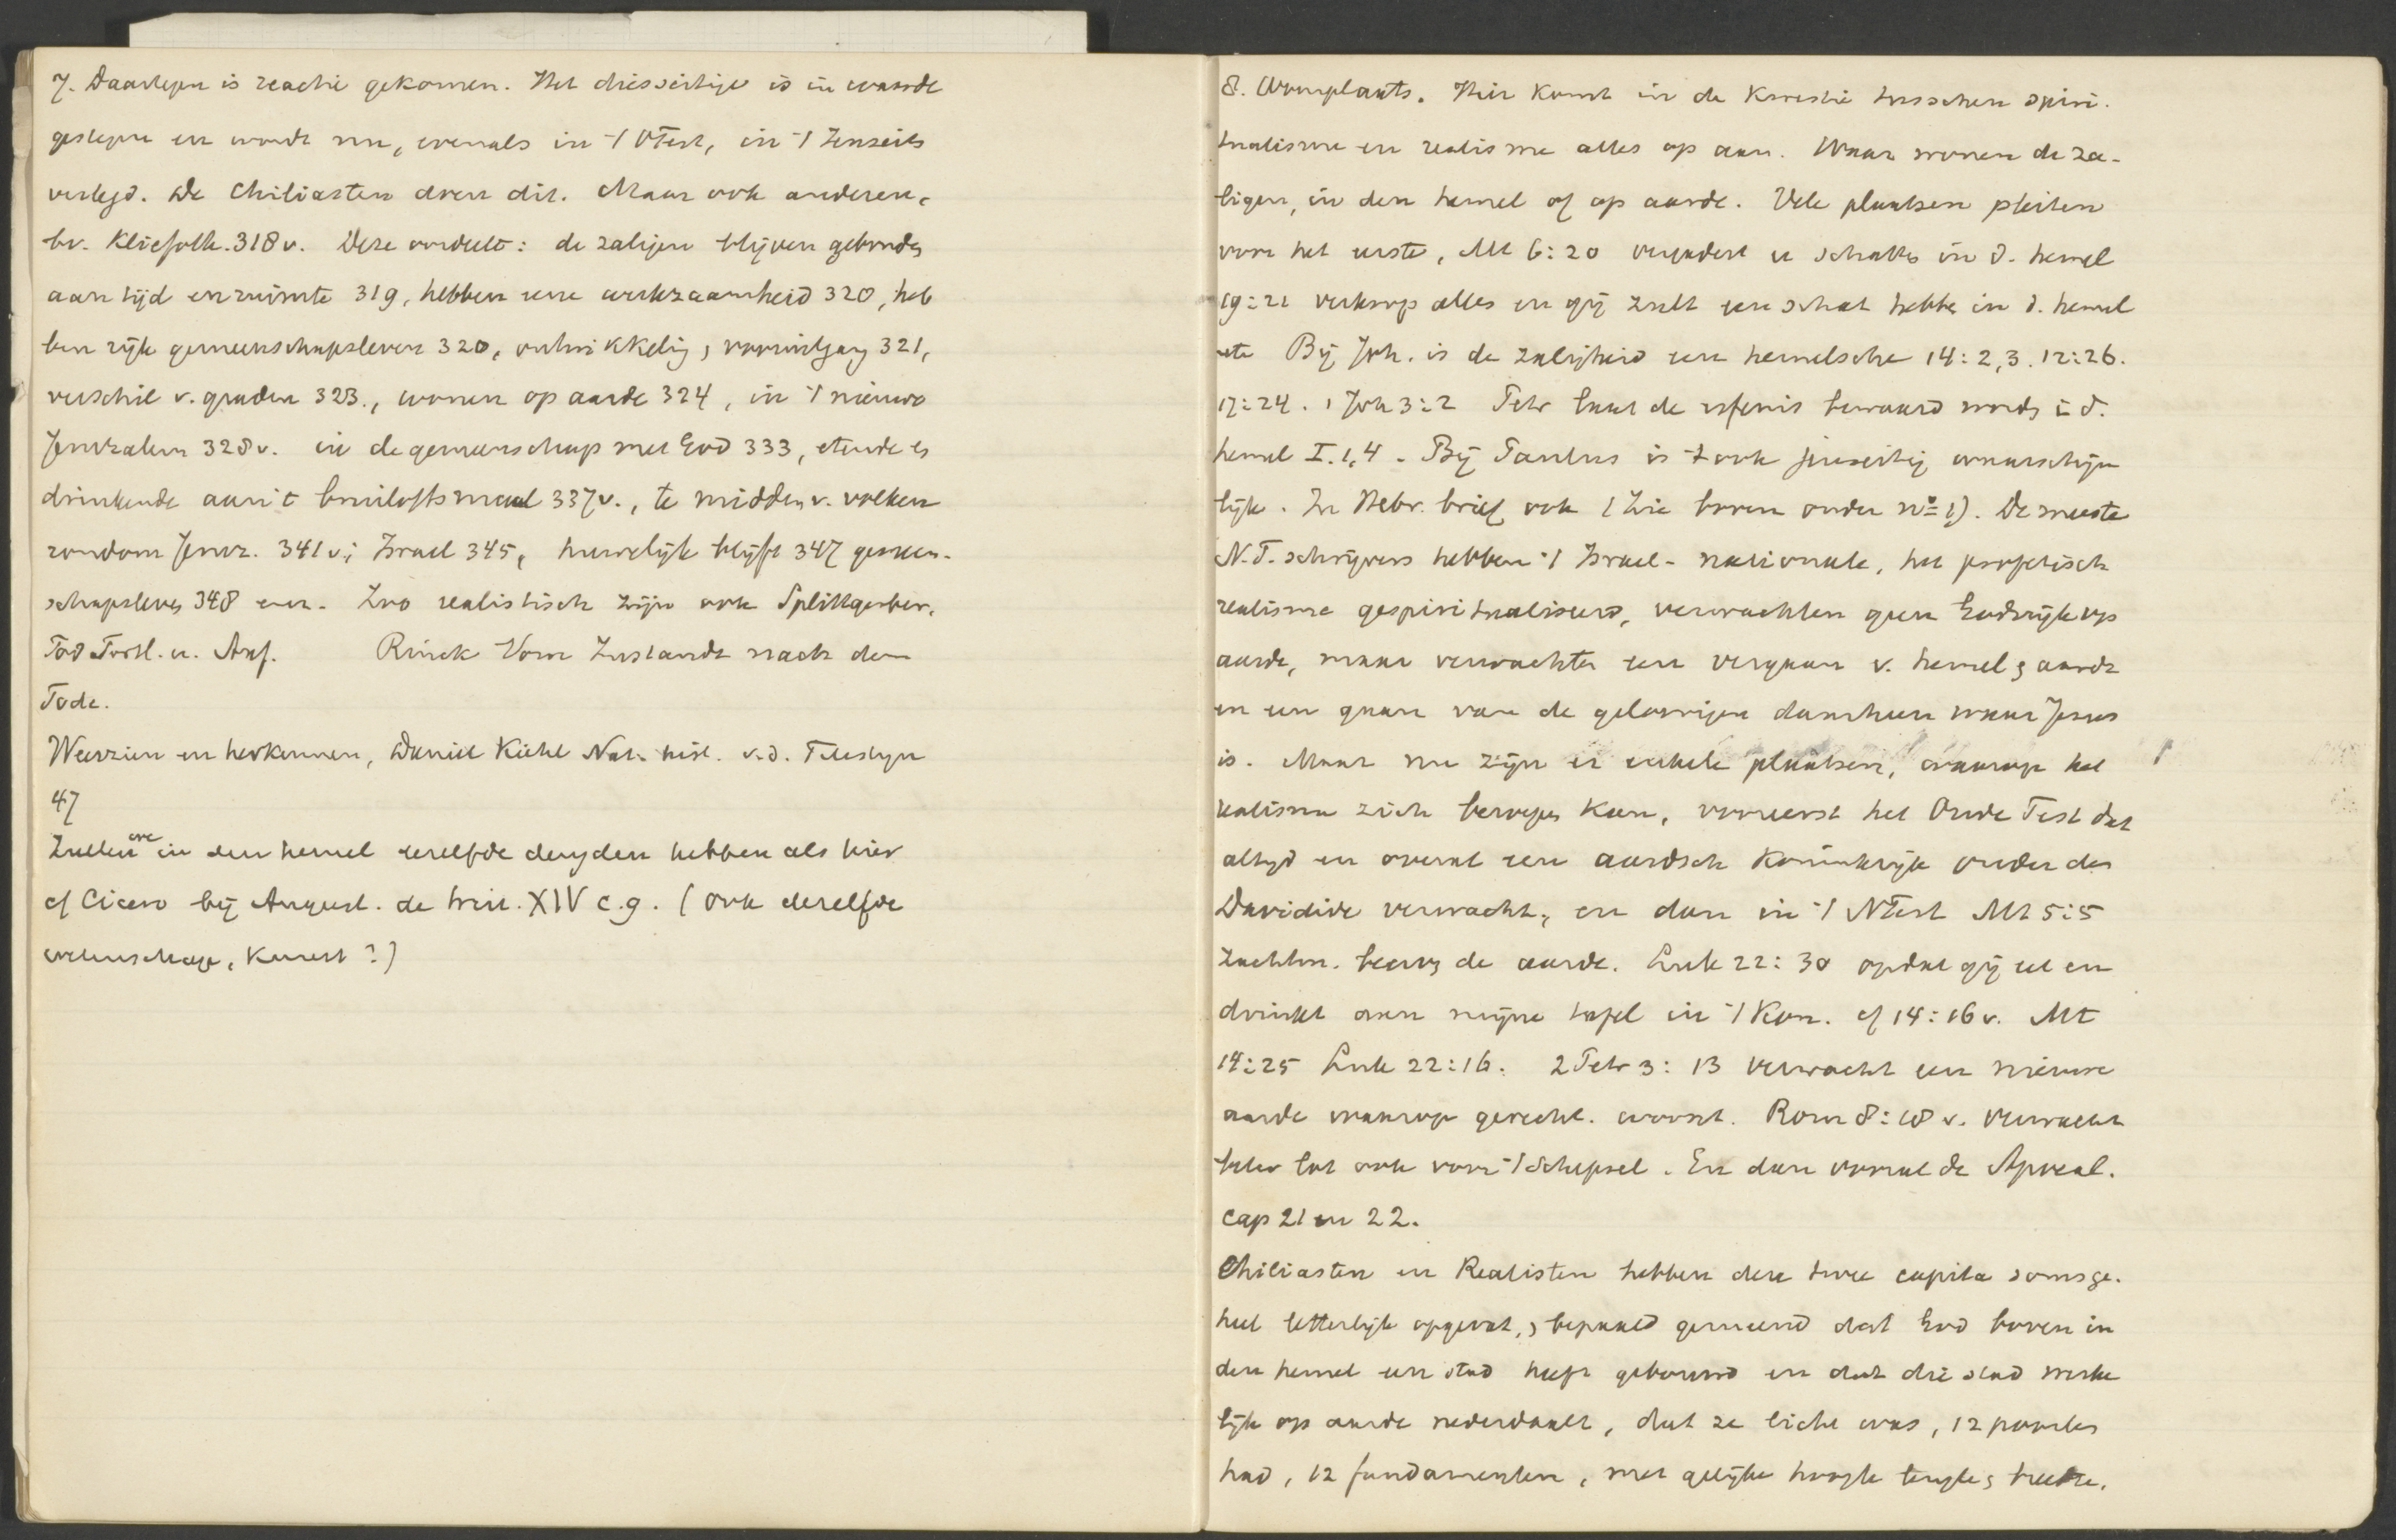 7. Daartegen is reactie gekomen. Het diesseitige is in waarde
gestegen en wordt nu, evenals in 't OTest, in 't Jenseits
verlegd. De Chiliasten doen dit. Maar ook anderen,
bv. Kliefoth. 318 v. Deze oordeelt: de zaligen blijven gebonden
aan tijd en ruimte 319, hebben eene werkzaamheid 320, heb
ben rijk gemeenschapsleven 320, ontwikkeling, vooruitgang 321,
verschil v. graden 323., wonen op aarde 324, in 't nieuwe
Jeruzalem 328 v. in de gemeenschap met God 333, etende en
drinkende aan 't bruiloftsmaal 337 v., te midden v. volken
rondom Jeruz. 341 v; Israel 345, huwelijk blijft 347 gemeen-
schapsleven 348 enz. Zoo realistisch zijn ook Splittgerber,
Tod Fortl. u. Auf. Rinck Vom Zustande nach dem
Tode.
Weerzien en herkennen, Daniel
47
Zullen we in den hemel dezelfde deugden hebben als hier
cf Cicero bij August. de trin. XIV c. 9. (ook dezelfde
wetenschap, kunst?)
8. Woonplaats. Hier komt in de kwestie tusschen spiri-
tualisme en realisme alles op aan. Waar wonen de za-
ligen, in den hemel of op aarde. Vele plaatsen pleiten
voor het eerste, Mt 6:20 vergadert u schatten in d. hemel
19:21 verkoop alles en gij zult een schat hebben in d. hemel
etc Bij Joh. is de zaligheid een hemelsche 14:2,3. 12:26.
17:24. 1 Joh 3:2 Petr laat de erfenis bewaard worden in d.
hemel I.1,4. Bij Paulus is 't ook jenseitig waarschijn
lijk. In Hebr. brief ook (Zie boven onder no 1). De meeste
N.T. schrijvers hebben 't Israel-nationale, het profetisch
realisme gespiritualiseerd, verwachten geen Godsrijk op
aarde, maar verwachten een vergaan v. hemel en aarde
en een gaan van de geloovigen daarheen waar Jezus
is. Maar nu zijn er enkele plaatsen, waarop het
realisme zich beroepen kan, vooreerst het Oude Test dat
altijd en overal een aardsch koninkrijk onder den
Davidide verwacht, en dan in 't NTest Mt 5:5
Zachtm. beerven de aarde. Luk 22:30 opdat gij eet en
drinkt aan mijne tafel in 't Kon. cf 14:16 v. Mt
14:25 Luk 22:16. 2 Petr 3:13 verwacht een nieuwe
aarde waarop gerecht. woont. Rom 8:18 v. verwacht
beter lot ook voor 't Schepsel. En dan vooral de Apocal.
cap 21 en 22.
Chiliasten en Realisten hebben deze twee capita soms ge-
heel letterlijk opgevat, en bepaald gemeend dat God boven in
den hemel een stad heeft gebouwd en dat die stad werke
lijk op aarde nederdaalt, dat ze licht was, 12 poorten
had, 12 fundamenten, met gelijke hoogte lengte en breedte.